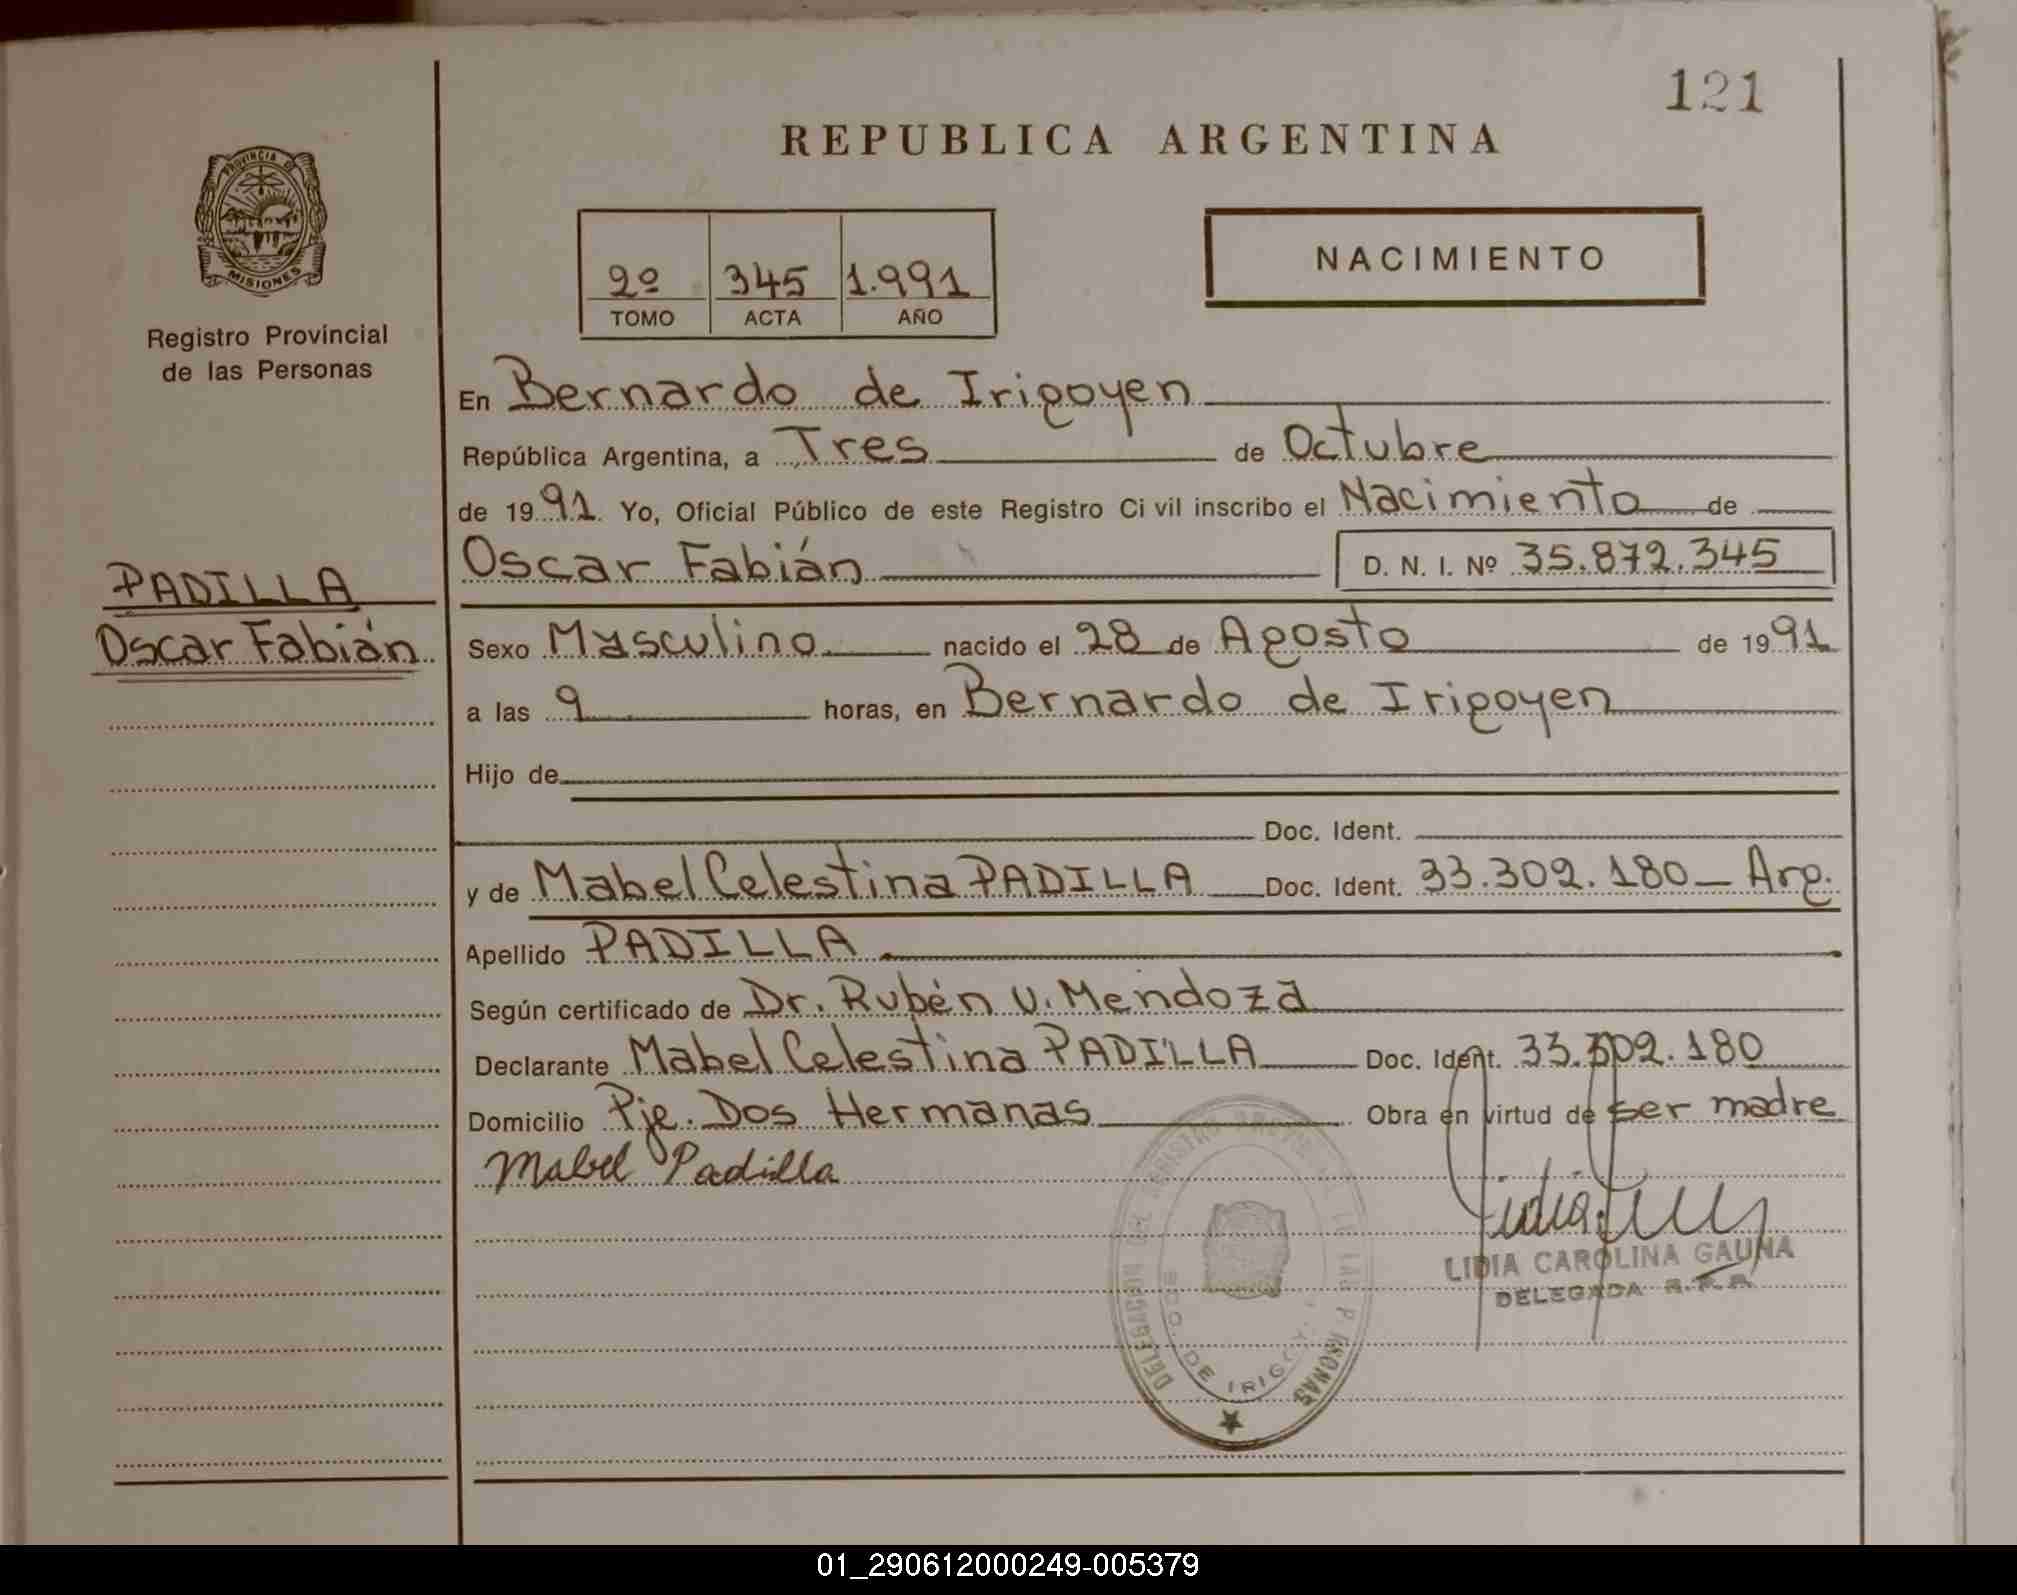 121
REPUBLICA ARGENTINA
PROVINCIA DE
MISIONES
Registro Provincial
de las Personas
2º 345 1.991
TOMO ACTA AÑO
NACIMIENTO
En Bernardo de Irigoyen
República Argentina, a Tres de Octubre
de 1991 Yo, Oficial Público de este Registro Civil inscribo el Nacimiento de
Oscar Fabián D. N. I. Nº 35.872.345
PADILLA
Oscar Fabián
Sexo Masculino nacido el 28 de Agosto de 1991
a las 9 horas, en Bernardo de Irigoyen
Hijo de
Doc. Ident.
y de Mabel Celestina PADILLA Doc. Ident. 33.302.180 - Arg.
Apellido PADILLA
Según certificado de Dr. Rubén U. Mendoza
Declarante Mabel Celestina PADILLA Doc. Ident. 33.302.180
Domicilio Pje. Dos Hermanas Obra en virtud de ser madre
Mabel Padilla
LIDIA CAROLINA GAUNA
DELEGADA R.P.P.
DEL REGISTRO
BDO. DE IRIGOYEN
01_290612000249-005379